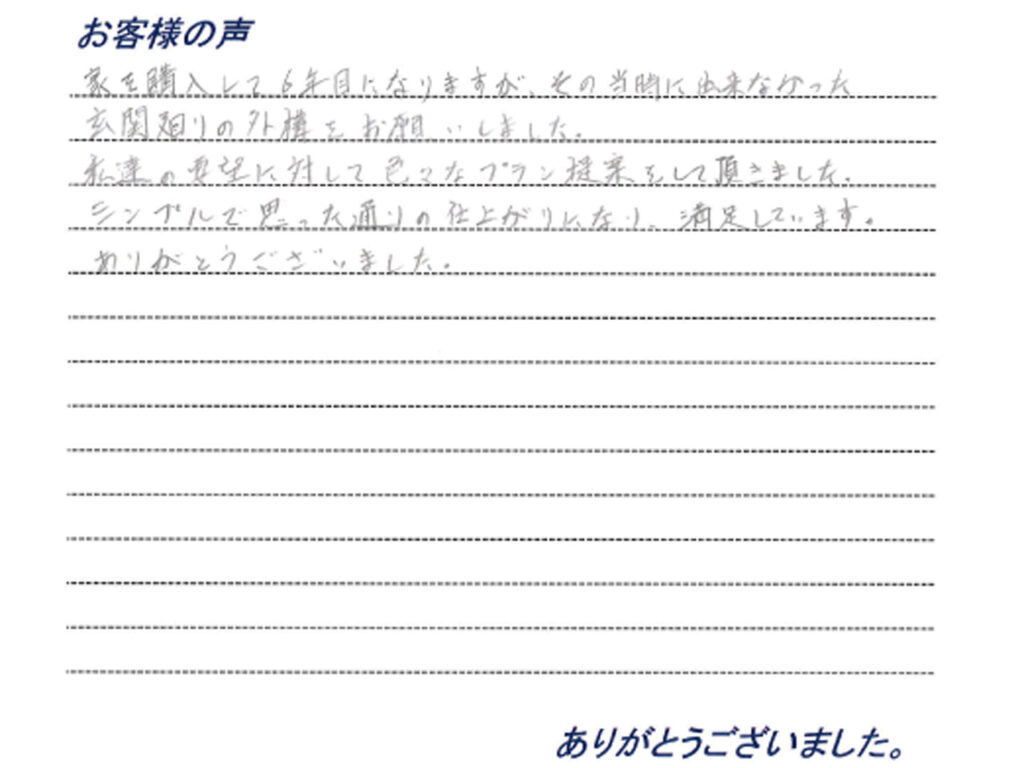 お客様の声
家を購入して6年目になりますが、その当時に出来なかった
玄関廻りの外構をお願いしました。
私達の要望に対して色々なプラン提案をして頂きました。
シンプルで思った通りの仕上がりになり、満足しています。
ありがとうございました。
ありがとうございました。